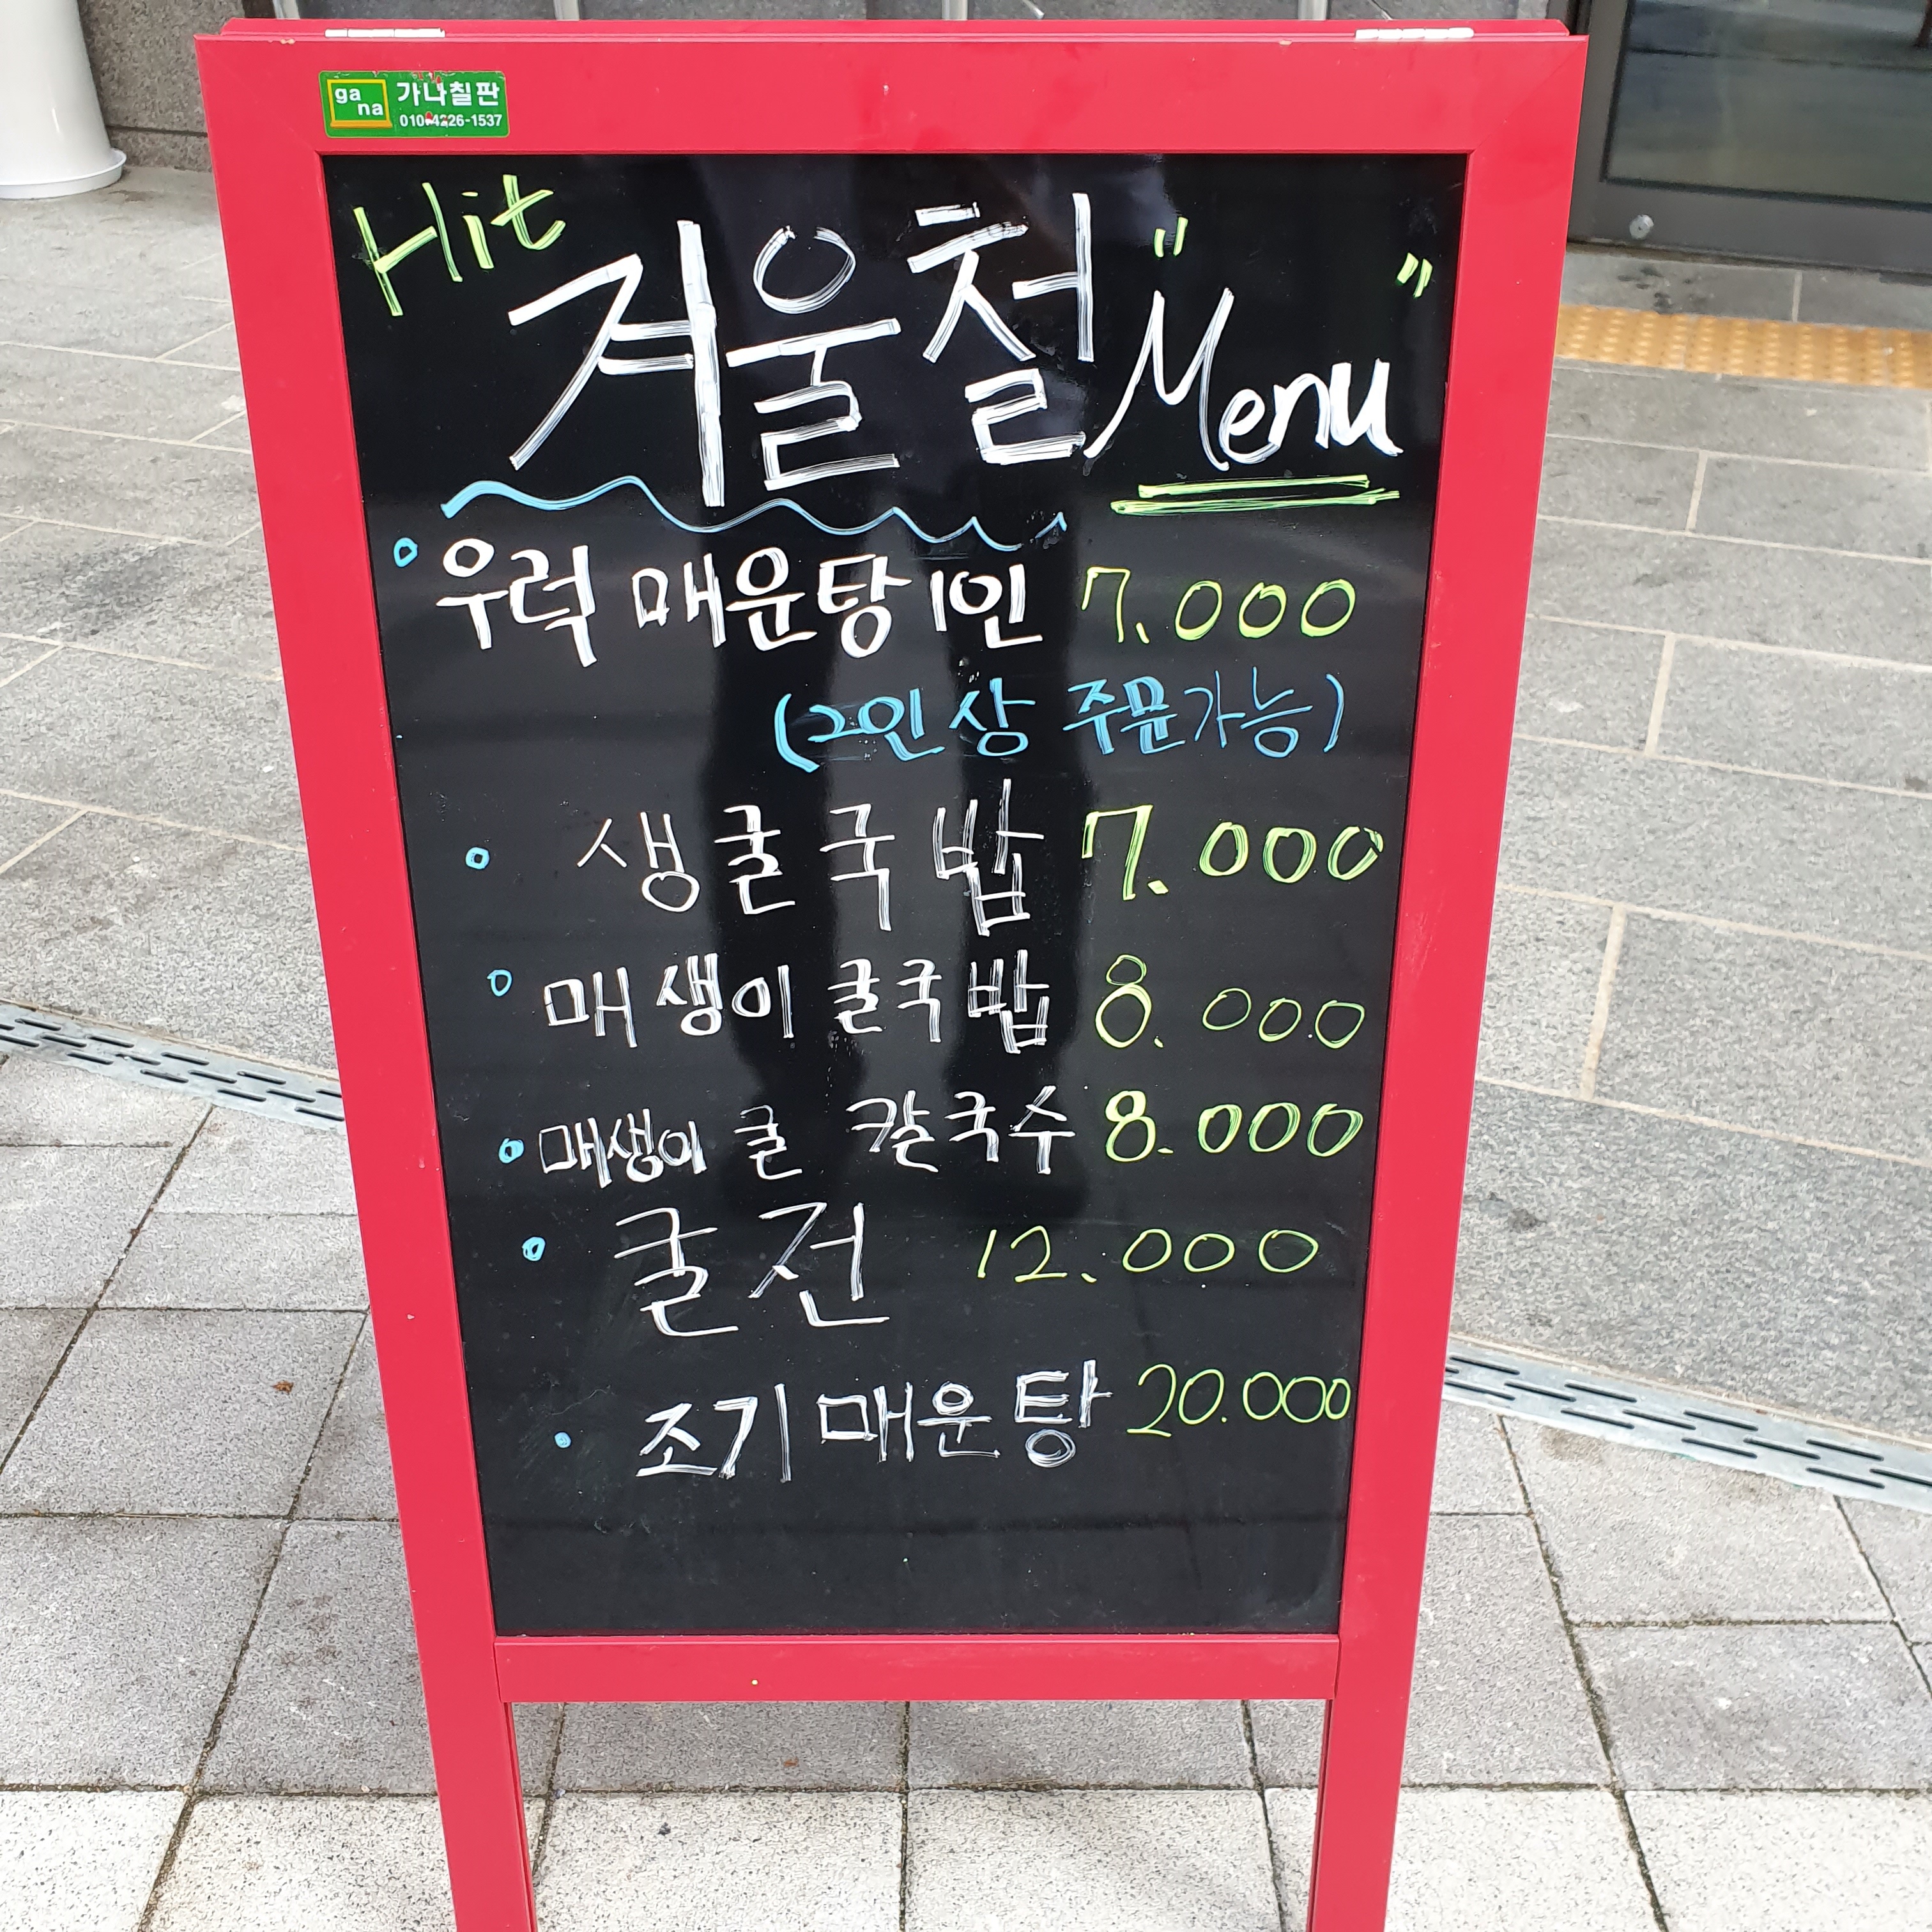 ga na 가나칠판
010-4226-1537
Hit
겨울철 "Menu"
우럭 매운탕 1인 7.000
(2인상 주문가능)
생굴국밥 7.000
매생이 굴국밥 8.000
매생이 굴 칼국수 8.000
굴전 12.000
조기매운탕 20.000